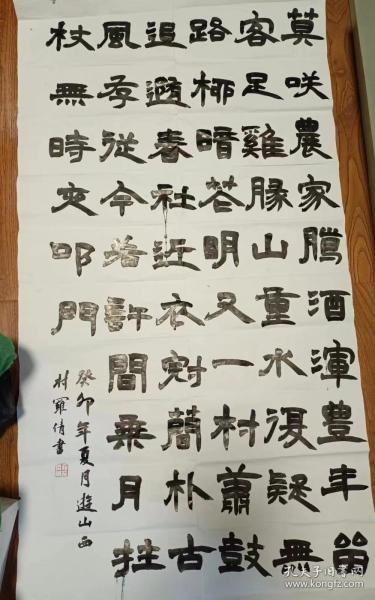 莫咲農家臈酒渾豊年留
客足雞豚山重水復疑無
路柳暗花明又一村蕭鼓
追隨春社近衣冠簡朴古
風存從今若許閒乗月拄
杖無時夜叩門
癸卯年夏月遊山西
村羅倩書
孔夫子旧书网